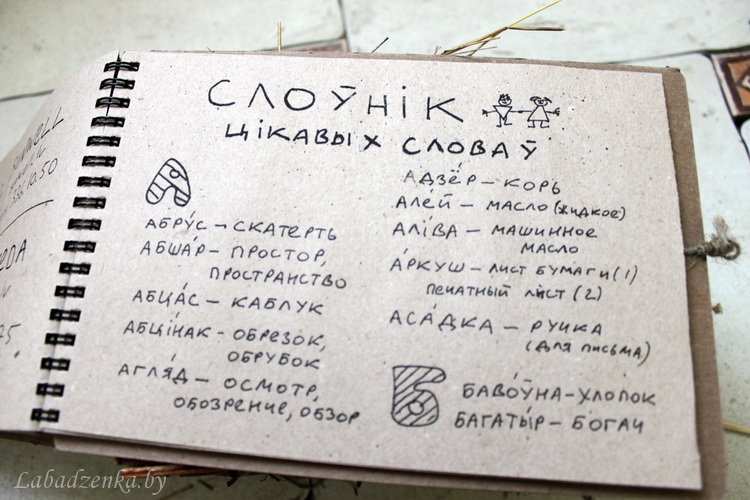 СЛОЎНІК
ЦІКАВЫХ СЛОВАЎ
А
АБРУ́С – СКАТЕРТЬ
АБША́Р – ПРОСТОР,
ПРОСТРАНСТВО
АБЦА́С – КАБЛУК
АБЦІ́НАК – ОБРЕЗОК,
ОБРУБОК
АГЛЯ́Д – ОСМОТР,
ОБОЗРЕНИЕ, ОБЗОР
АДЗЁР – КОРЬ
АЛЕ́Й – МАСЛО (ЖИДКОЕ)
АЛІ́ВА – МАШИННОЕ
МАСЛО
А́РКУШ – ЛИСТ БУМАГИ (1)
ПЕЧАТНЫЙ ЛИСТ (2)
АСА́ДКА – РУЧКА
(ДЛЯ ПИСЬМА)
Б
БАВО́ЎНА – ХЛОПОК
БАГАТЫ́Р – БОГАЧ
Labadzenka.by